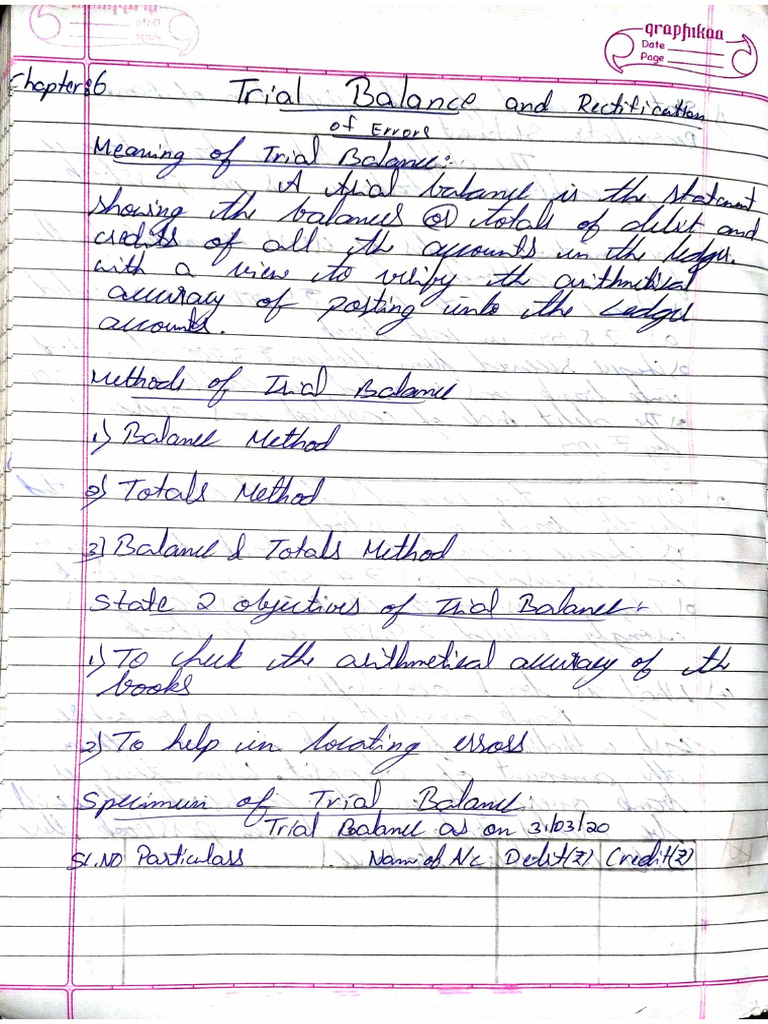 graphikaa
Date
Page
Chapter:6 Trial Balance and Rectification
of Errors
Meaning of Trial Balance:
A trial balance is the statement
showing the balances or totals of debit and
credits of all the accounts in the ledger.
with a view to verify the arithmetical
accuracy of posting into the Ledger
accounts.
Methods of Trial Balance
1) Balance Method
2) Totals Method
3) Balance & Totals Method
State 2 objectives of Trial Balance:
1) To check the arithmetical accuracy of the
books
2) To help in locating errors
Specimen of Trial Balance:
Trial Balance as on 31/03/20
Sl.No Particulars Name of A/c Debit(₹) Credit(₹)